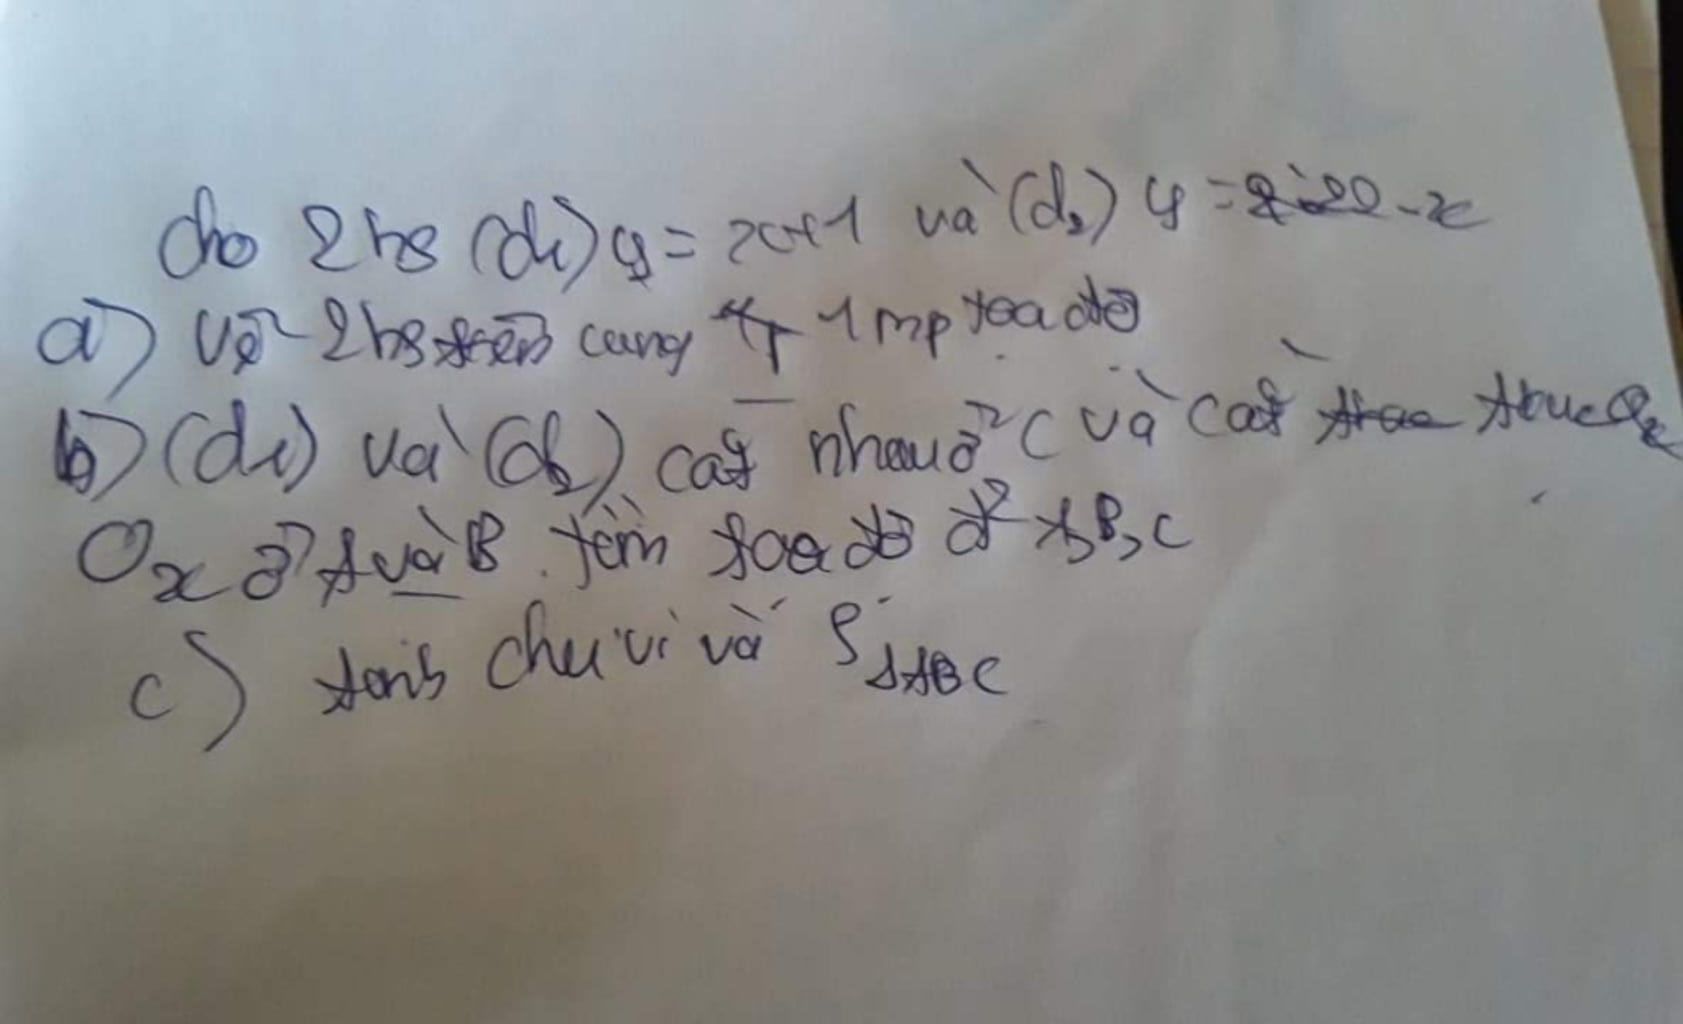 cho 2 hs (d₁) y = x+1 và (d₂) y = 2-x
a) vẽ 2 hs cùng 1 mp tọa độ
b) (d₁) và (d₂) cắt nhau ở C và cắt trục Ox
Ox ở A và B. tìm tọa độ A, B, C
c) tính chu vi và S ΔABC